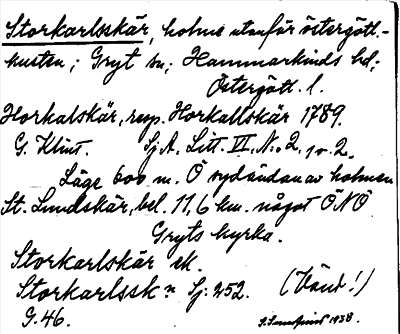 Storkarlsskär, holme utanför östergött.-
kusten; Gryt sn; Hammarkinds hd;
Östergötl. l.
Horkalskär, resp. Horkallskär 1789.
G. Klint. Sj.A. Litt. VI, No 2, 1o. 2.
Läge 600 m. Ö sydändan av holmen
St. Lundskär, bel. 11,6 km. något ÖNÖ
Gryts kyrka.
Storkarlskär ek.
Storkarlssk:n Sj: 252. (Vänd!)
G. 46. 1938.